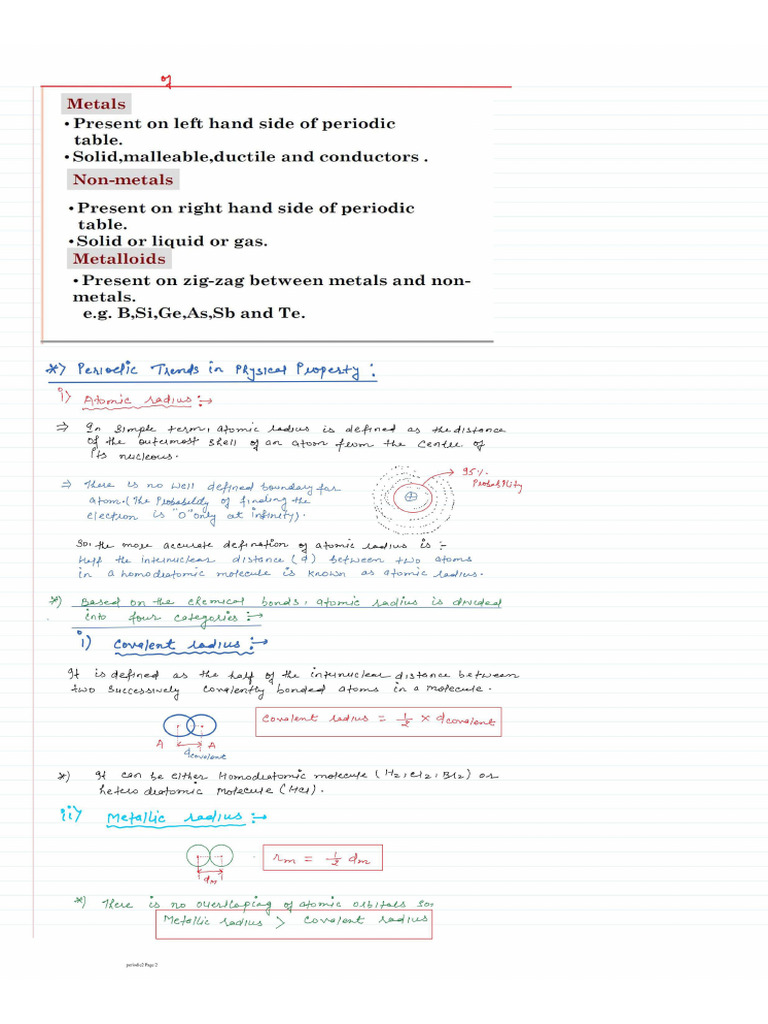 of
Metals
• Present on left hand side of periodic
table.
• Solid,malleable,ductile and conductors .
Non-metals
• Present on right hand side of periodic
table.
• Solid or liquid or gas.
Metalloids
• Present on zig-zag between metals and non-
metals.
e.g. B,Si,Ge,As,Sb and Te.
*) Periodic Trends in Physical Property :
i) Atomic radius :→
⇒ In simple term, atomic radius is defined as the distance
of the outermost shell of an atom from the center of
its nucleous.
⇒ There is no well defined boundary for
atom. (The Probability of finding the
electron is "0" only at infinity).
95%
Probability
So, the more accurate defination of atomic radius is :-
Half the internuclear distance (d) between two atoms
in a homodiatomic molecule is known as atomic radius.
*) Based on the chemical bonds, atomic radius is divided
into four categories :→
i) Covalent radius :→
It is defined as the half of the internuclear distance between
two successively covalently bonded atoms in a molecule.
Covalent radius = 1/2 × dcovalent
A A
dcovalent
*) It can be either Homodiatomic molecule (H2, Cl2, Br2) or
hetero diatomic molecule (HCl).
ii) Metallic radius :→
rm = 1/2 dm
dm
*) There is no overlaping of atomic orbitals so,
Metallic radius > Covalent radius
periodic2 Page 2